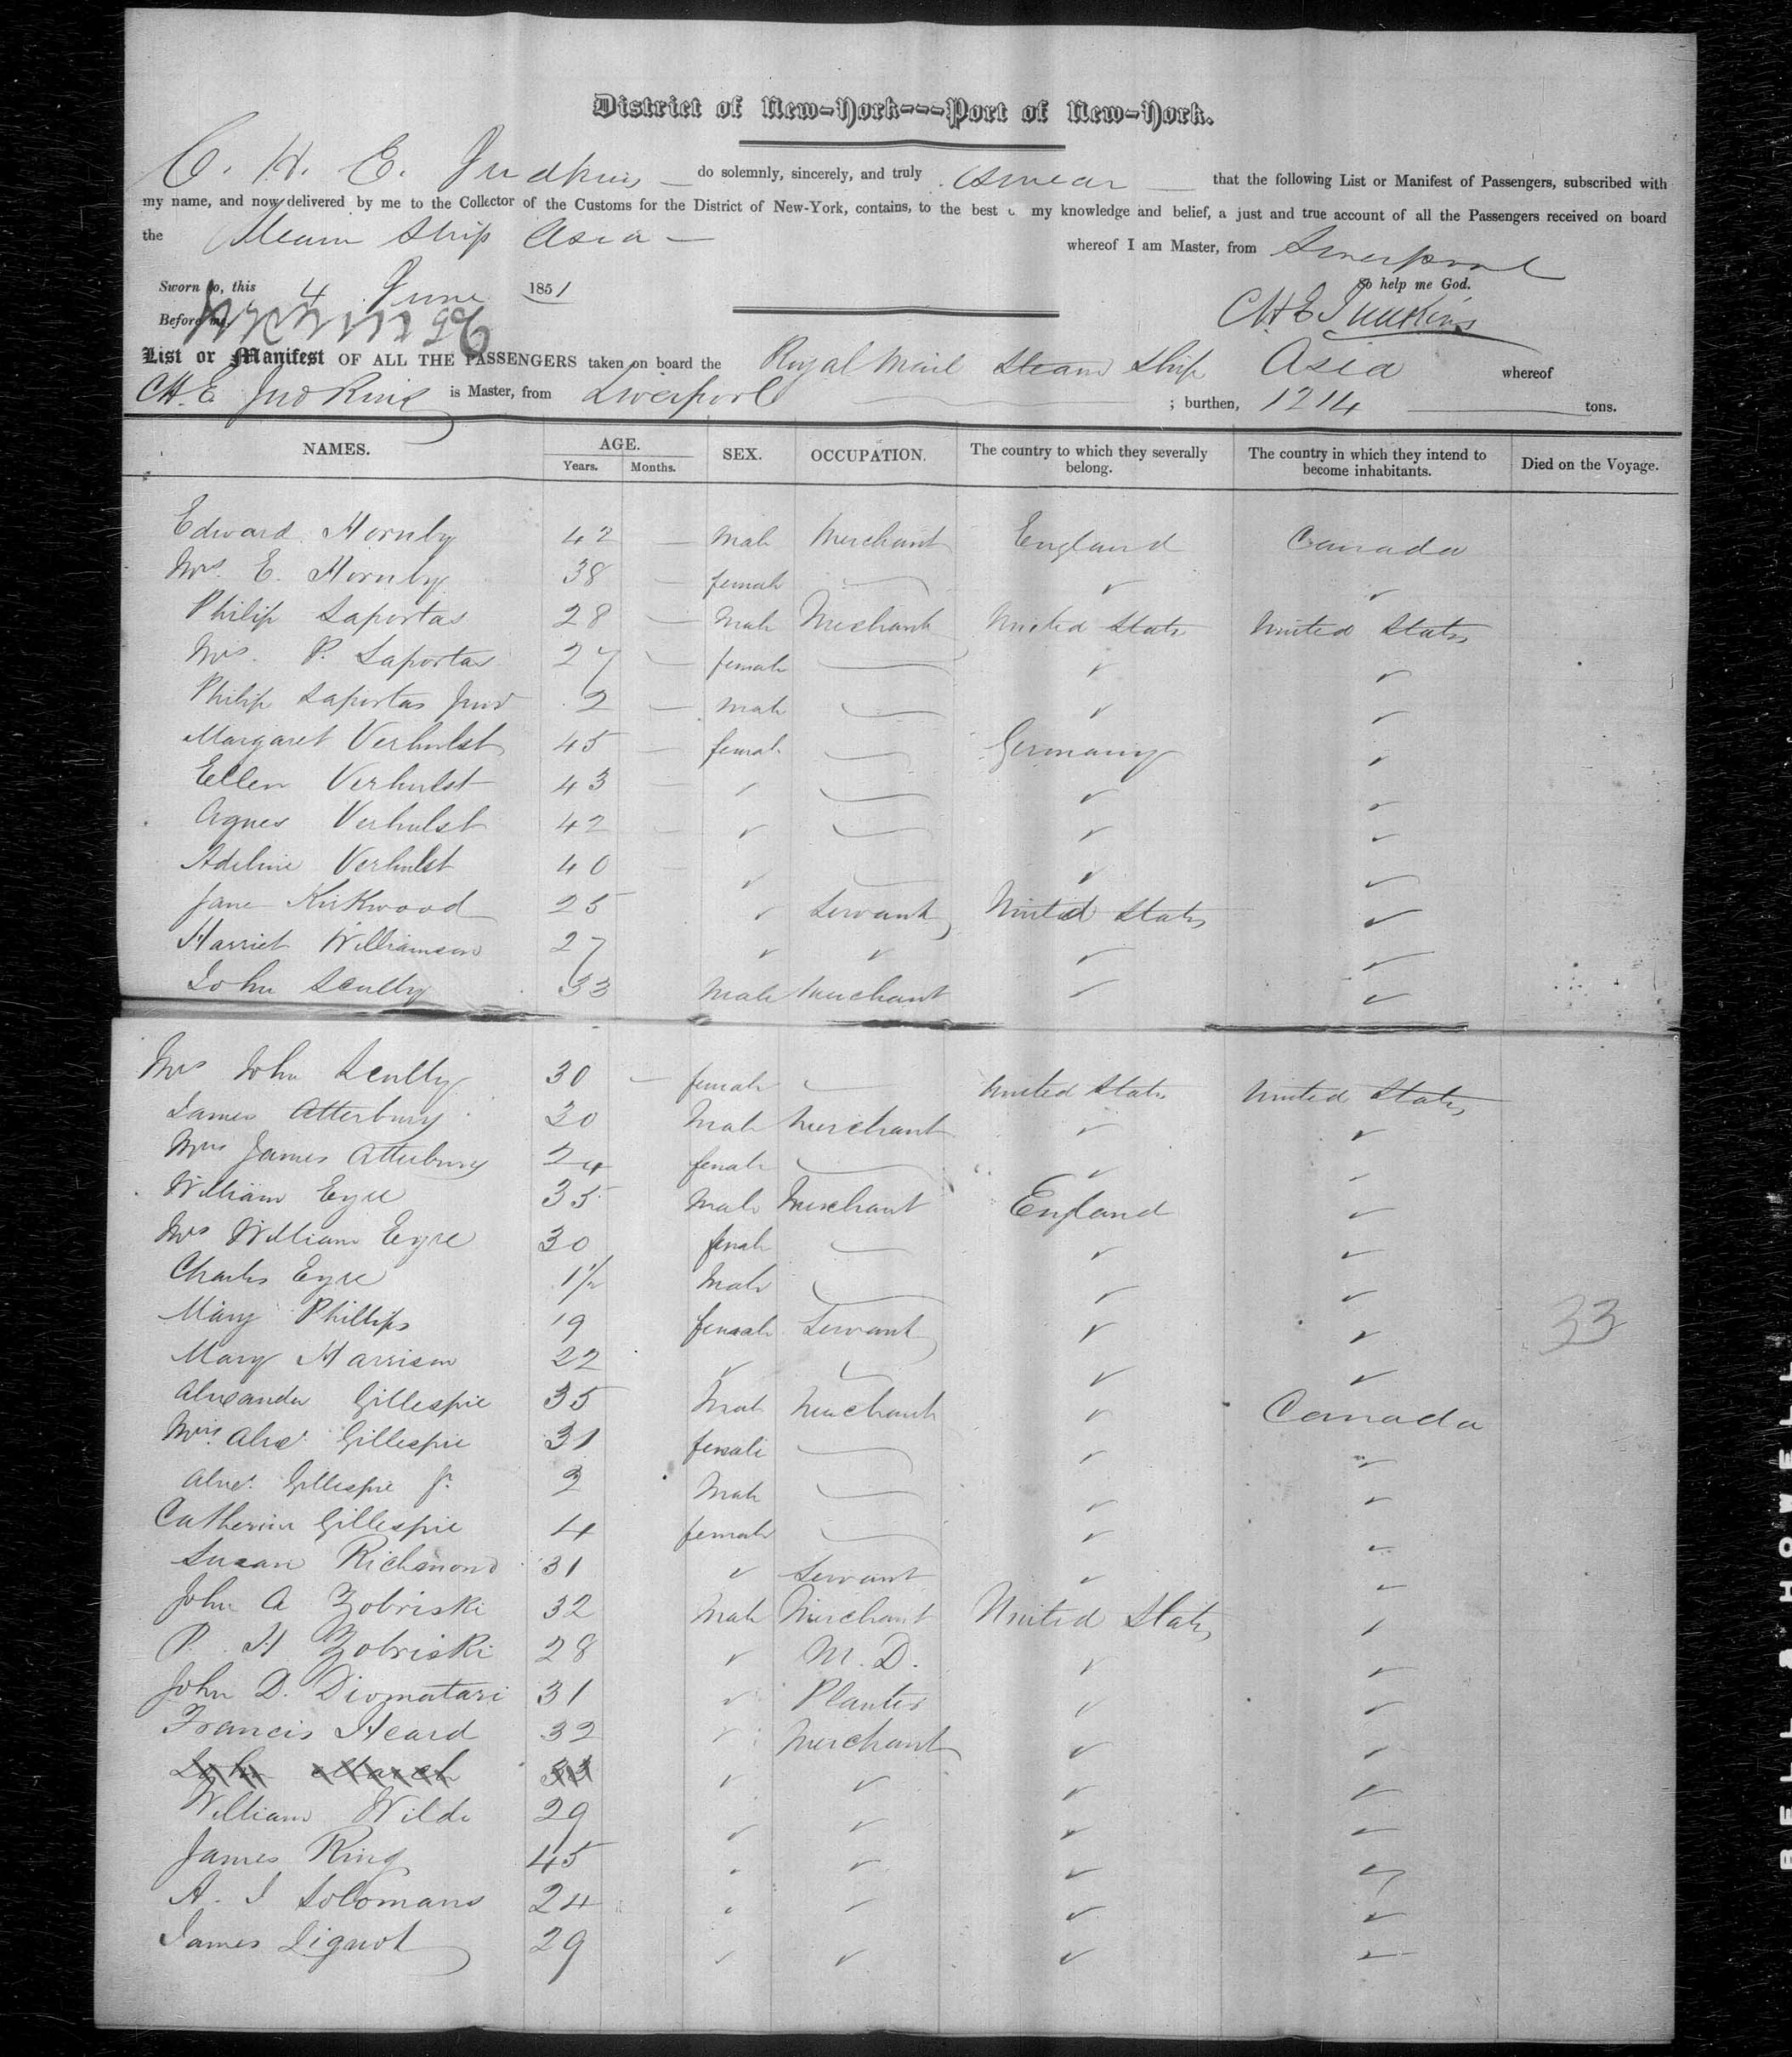 District of New-York---Port of New-York.
C. H. E. Judkins — do solemnly, sincerely, and truly Swear — that the following List or Manifest of Passengers, subscribed with
my name, and now delivered by me to the Collector of the Customs for the District of New-York, contains, to the best my knowledge and belief, a just and true account of all the Passengers received on board
the Steam Ship Asia — whereof I am Master, from Liverpool
Sworn to, this 4 June 1851 So help me God.
Before me, CHE Judkins
List or Manifest OF ALL THE PASSENGERS taken on board the Royal Mail Steam Ship Asia whereof
CH. E Judkins is Master, from Liverpool ; burthen, 1214 tons.
NAMES. AGE. Years. Months. SEX. OCCUPATION. The country to which they severally belong. The country in which they intend to become inhabitants. Died on the Voyage.
Edward Hornby 42 — Male Merchant England Canada
Mrs. E. Hornby 38 — female — ✓ ✓
Philip Laportas 28 — Male Merchant United States United States
Mrs. P. Laportas 27 — female — ✓ ✓
Philip Laportas Junr 2 — Male — ✓ ✓
Margaret Verhulst 45 — female — Germany ✓
Ellen Verhulst 43 — ✓ — ✓ ✓
Agnes Verhulst 42 — ✓ — ✓ ✓
Adeline Verhulst 40 — ✓ — ✓ ✓
Jane Kirkwood 25 ✓ Servant United States ✓
Harriet Williamson 27 ✓ ✓ ✓ ✓
John Scully 33 Male Merchant ✓ ✓
Mrs John Scully 30 — female — United States United States
James Atterbury 30 Male Merchant ✓ ✓
Mrs James Atterbury 24 female — ✓ ✓
William Eyre 35 Male Merchant England ✓
Mrs William Eyre 30 female — ✓ ✓
Charles Eyre 1½ Male — ✓ ✓
Mary Phillips 19 female Servant ✓ ✓ 33
Mary Harrison 22 ✓ ✓ ✓ ✓
Alexander Gillespie 35 Male Merchant ✓ Canada
Mrs. Alexr. Gillespie 31 female — ✓ ✓
Alexr. Gillespie Jr. 2 Male — ✓ ✓
Catherine Gillespie 4 female — ✓ ✓
Susan Richmond 31 ✓ Servant ✓ ✓
John A Zobriski 32 Male Merchant United States ✓
P. H Zobriski 28 ✓ M. D. ✓ ✓
John D. Diomatari 31 ✓ Planter ✓ ✓
Francis Heard 32 ✓ Merchant ✓ ✓
John March 33 ✓ ✓ ✓ ✓
William Wilde 29 ✓ ✓ ✓ ✓
James Ring 45 ✓ ✓ ✓ ✓
A. I Solomans 24 ✓ ✓ ✓ ✓
James 29 ✓ ✓ ✓ ✓
BELL & HOWELL